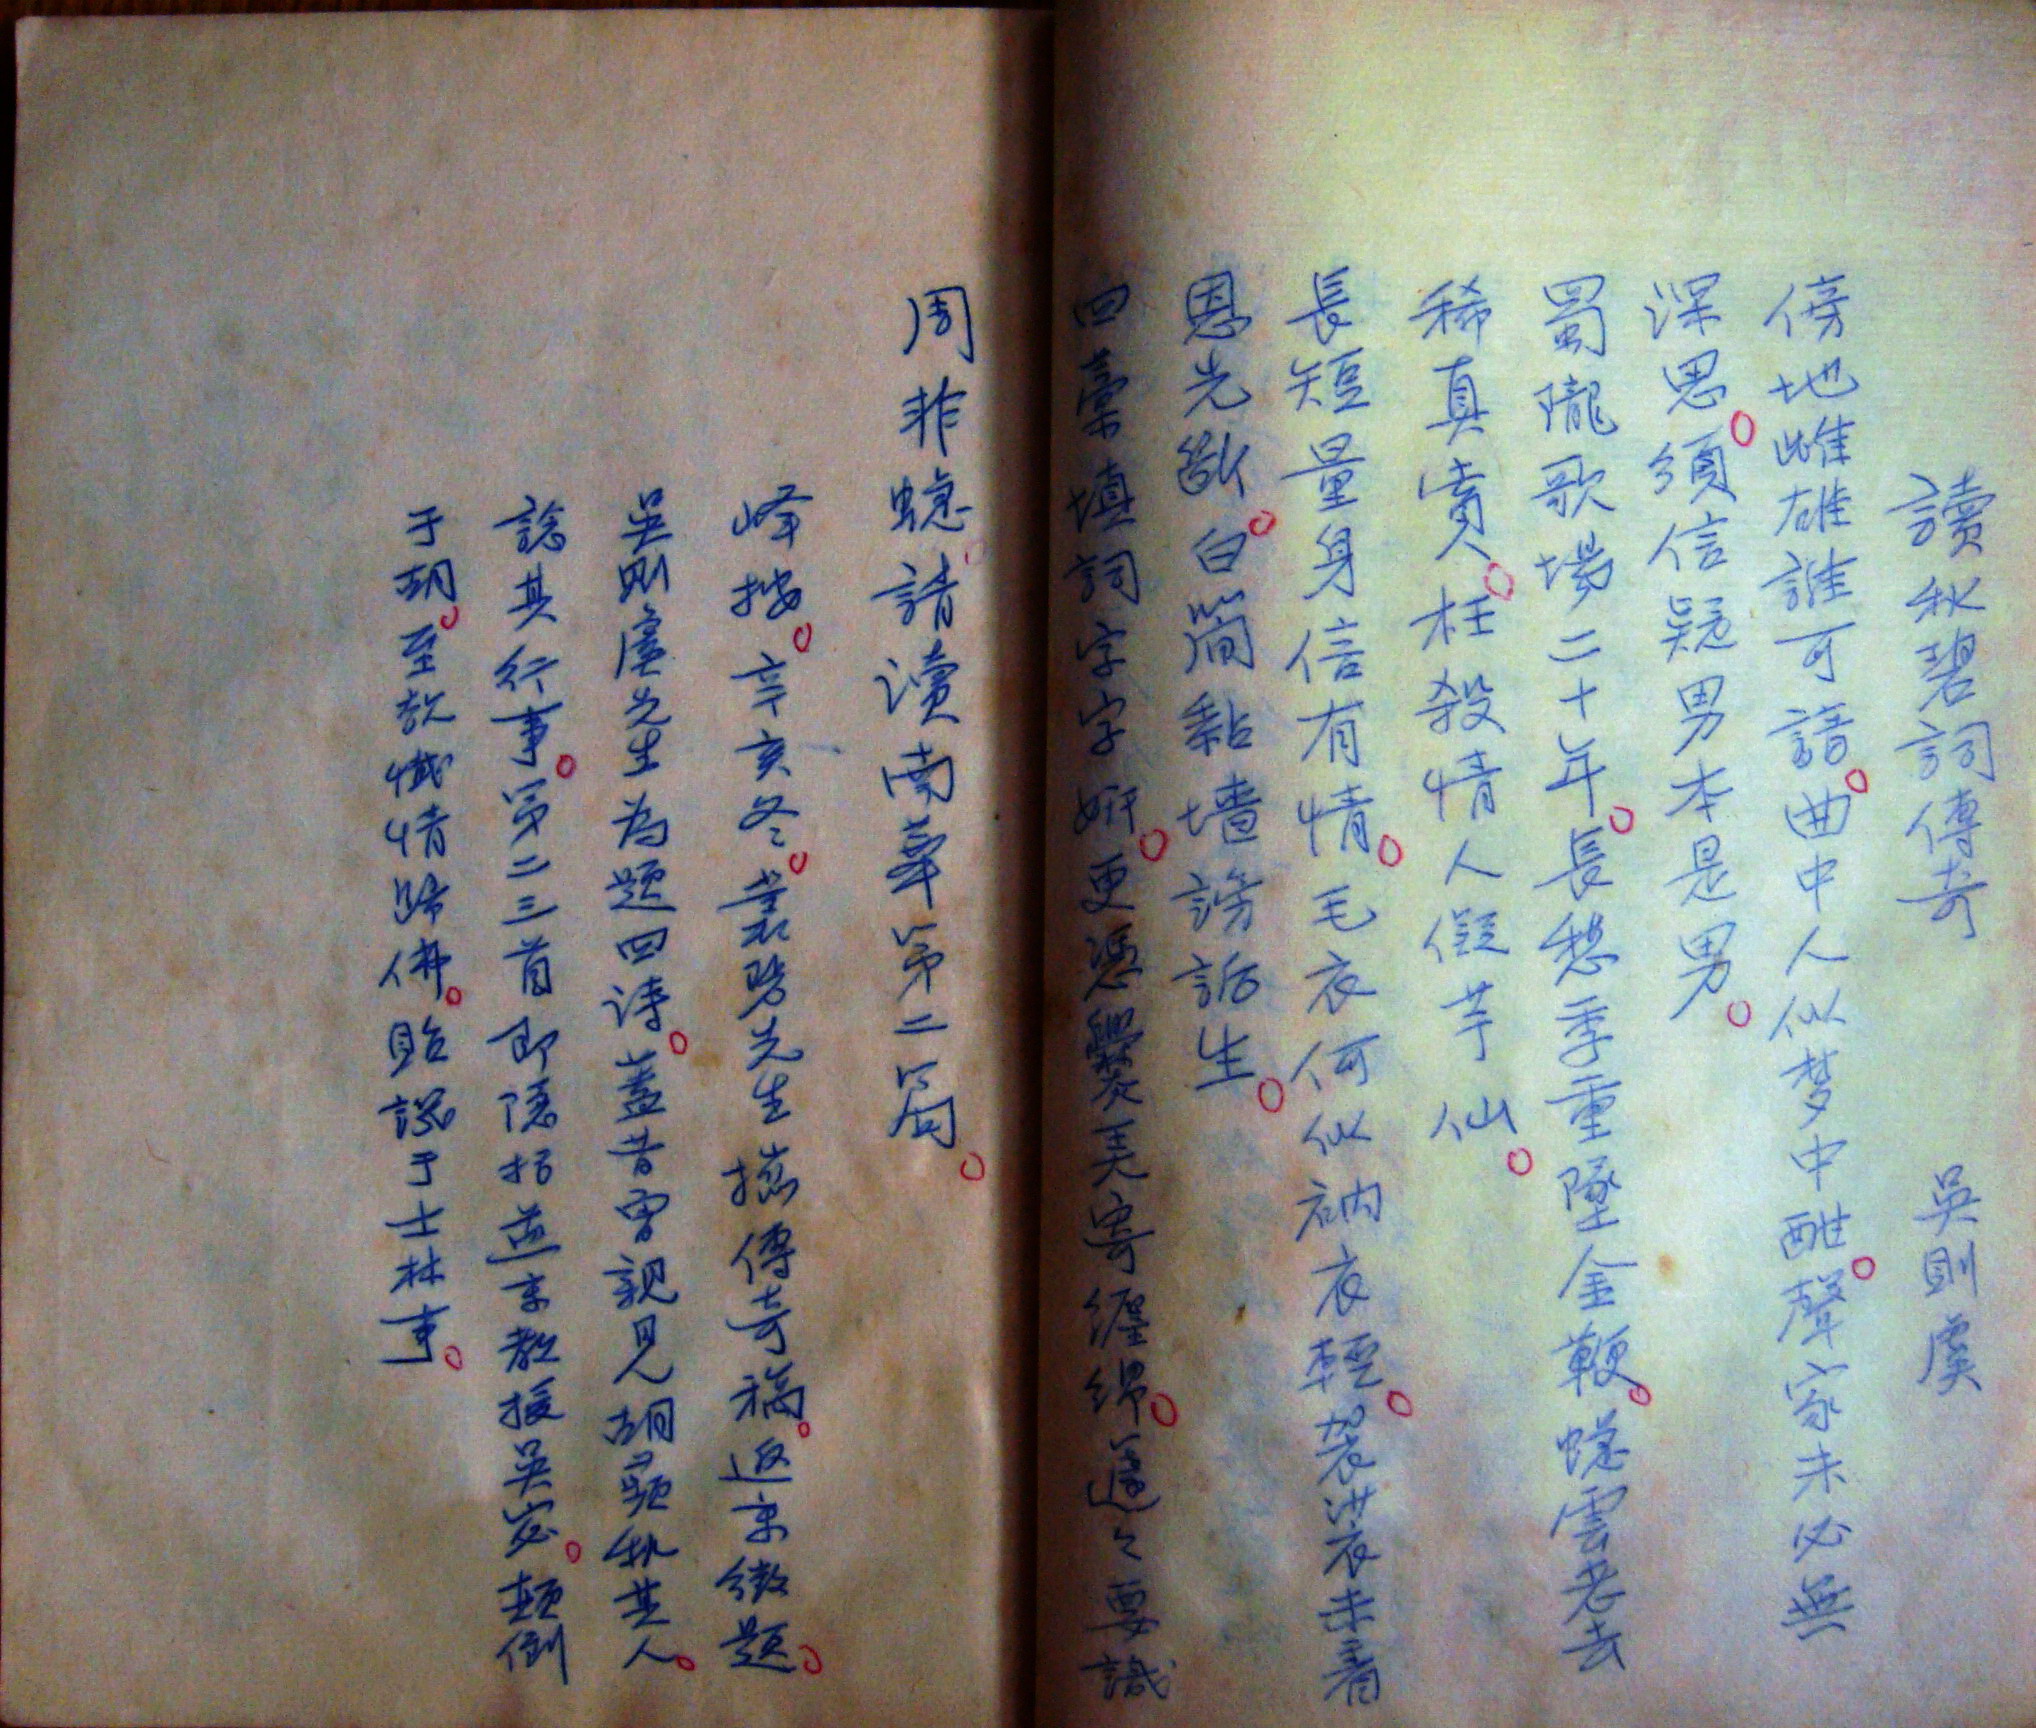 讀秋碧詞傳奇　吳則虞
傍地雌雄誰可諳。曲中人似梦中酣。聲家未必無
深思。須信疑男本是男。
蜀隴歌場二十年。長愁季重墜金鞭。蟌雲老去
稀真賞。枉殺情人假芋仙。
長短量身信有情。毛衣何似衲衣輕。袈裟未着
恩先斷。白簡黏墻謗詬生。
四橐填詞字字妍。更憑爨弄寄纏綿。邊々要識
周非蟌。請讀南華第二篇。
峰按。辛亥冬。叢碧先生携傳奇稿。返京徵题。
吴则虞先生为题四诗。盖昔曾親見胡蘋秋其人。
諗其行事。第二三首即隐括燕京教授吴宓。顛倒
于胡。至欲懺情歸佛。貽謗于士林事。